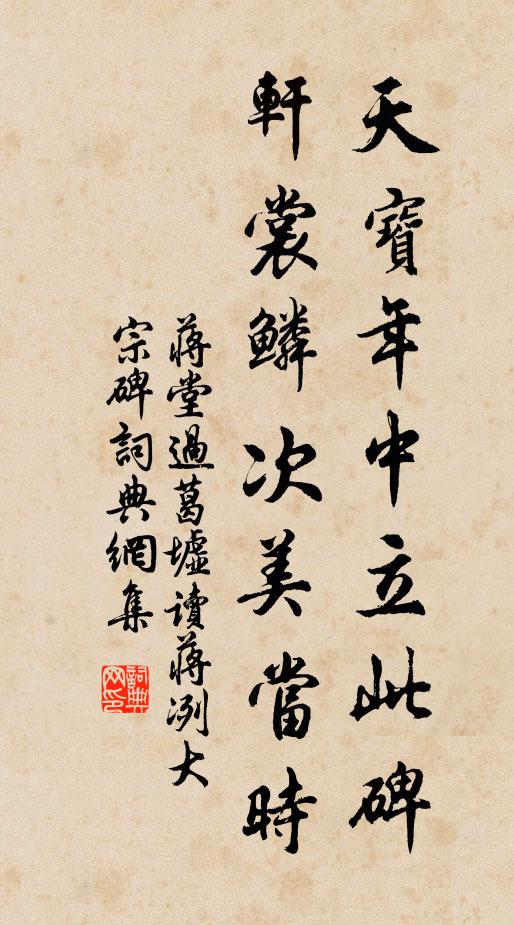 天寶年中立此碑
軒裳鱗次美當時
蔣堂過葛墟讀蔣冽大
宗碑詞典網集
詞典
网印